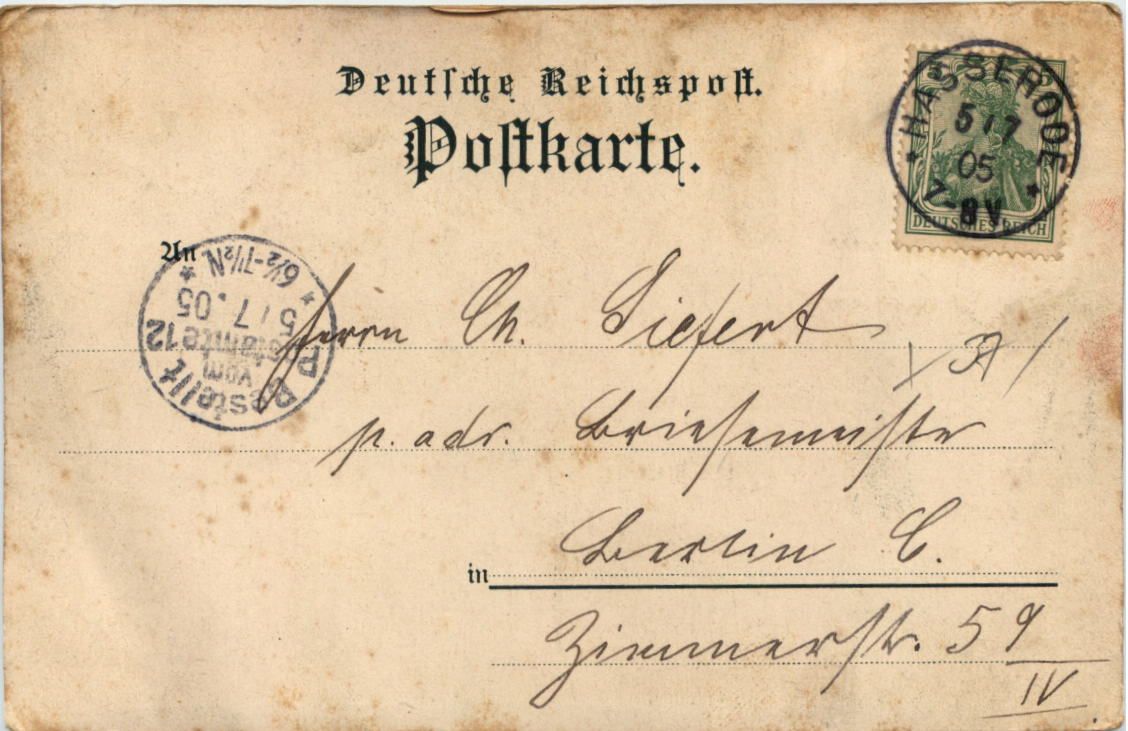 Deutsche Reichspost.
Postkarte.
* HASSERODE *
5/7
05
7-8V
DEUTSCHES REICH
An
Bestellt
vom
Postamte 12
5/7.05
* 6½-7½N *
Herrn Ch. Siefert
p. adr. Briesemeister
in Berlin C.
Zimmerstr. 59
IV